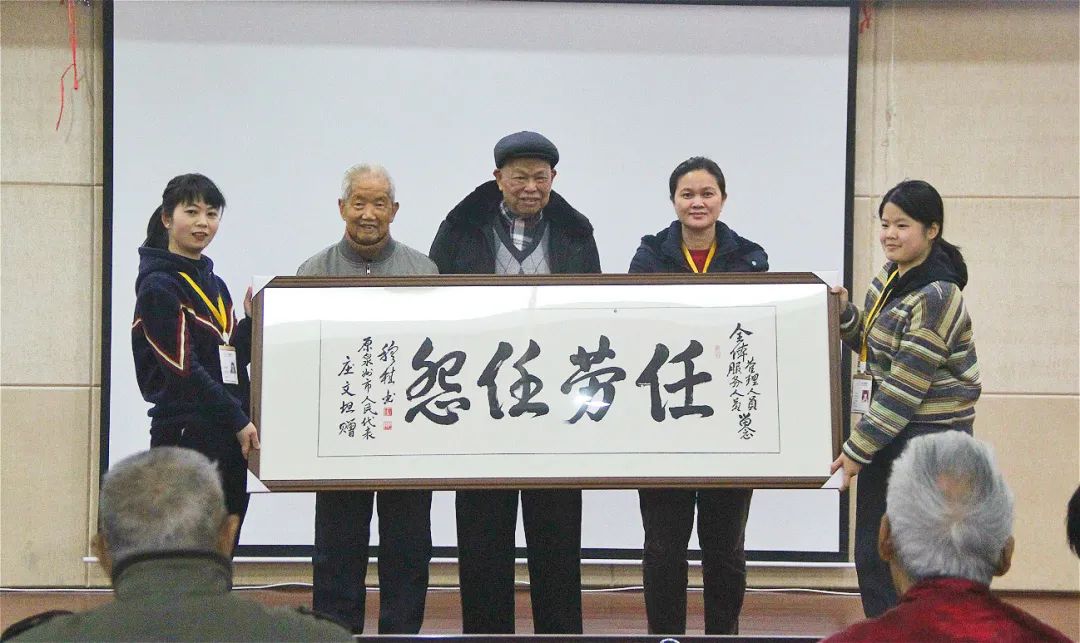 全体管理人员服务人员留念
任劳任怨
书
原泉州市人民代表
庄文坦赠